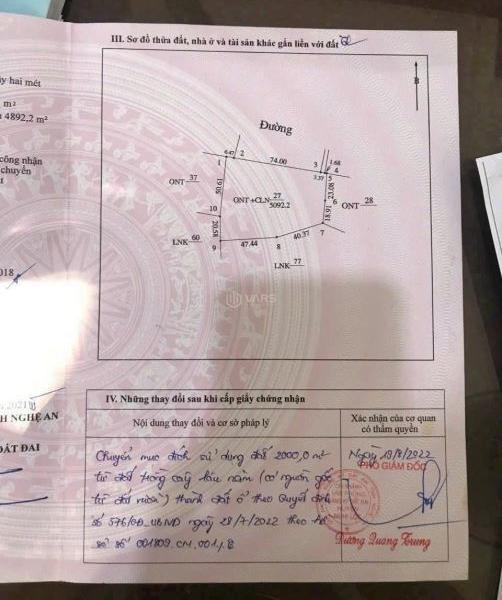 III. Sơ đồ thửa đất, nhà ở và tài sản khác gắn liền với đất
ỷ hai mét
m²
4892,2 m²
công nhận
chuyển
018
B
Đường
6.47
2
74.00
3
1.68
4
1
3.37
5
ONT 37
50.61
23.08
ONT+CLN 27
5092.2
6
ONT 28
10
18.91
20.58
40.37
7
LNK 60
47.44
9
8
LNK 77
VARS
2021
H NGHỆ AN
ĐẤT ĐAI
IV. Những thay đổi sau khi cấp giấy chứng nhận
Nội dung thay đổi và cơ sở pháp lý
Xác nhận của cơ quan
có thẩm quyền
Chuyển mục đích sử dụng đất 2000,0 m²
từ đất trồng cây lâu năm (có nguồn gốc
từ đất vườn) thành đất ở theo Quyết định
số 576/QĐ.UBND ngày 28/7/2022 theo hồ
sơ số 001809.CN.001
Ngày 29/7/2022
PHÓ GIÁM ĐỐC
Dương Quang Trung